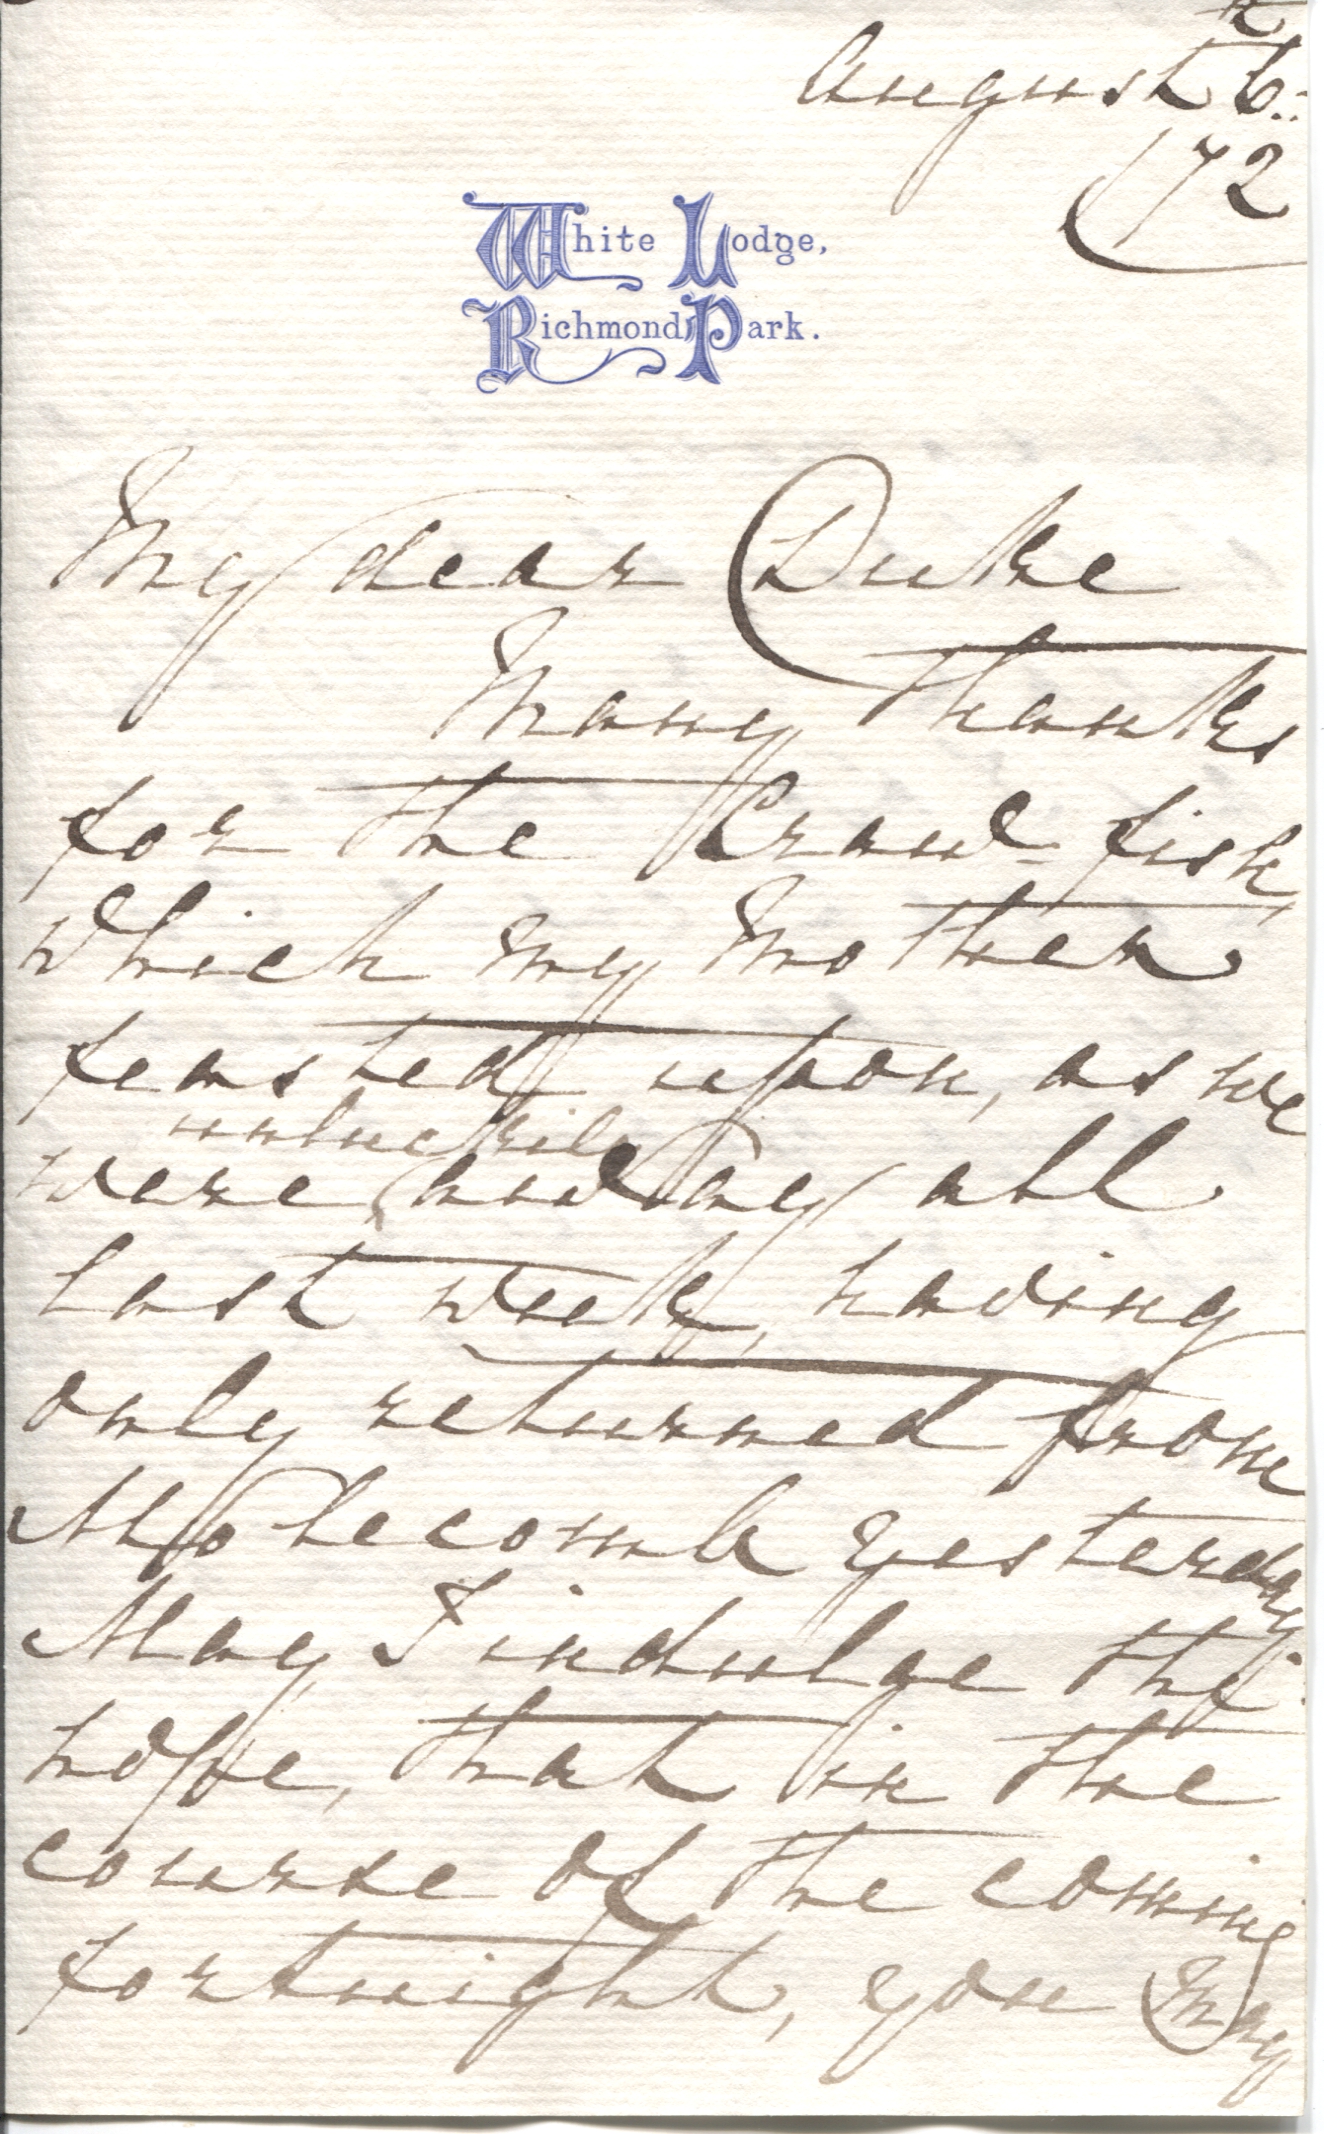 August 6th
/72
White Lodge,
Richmond Park.
My dear Duke
Many thanks
for the Craw-fish,
which my Mother
feasted upon, as we
unluckily
were away all
last week, having
only returned from
yesterday.
May I indulge the
hope, that in the
course of the coming
fortnight, you may